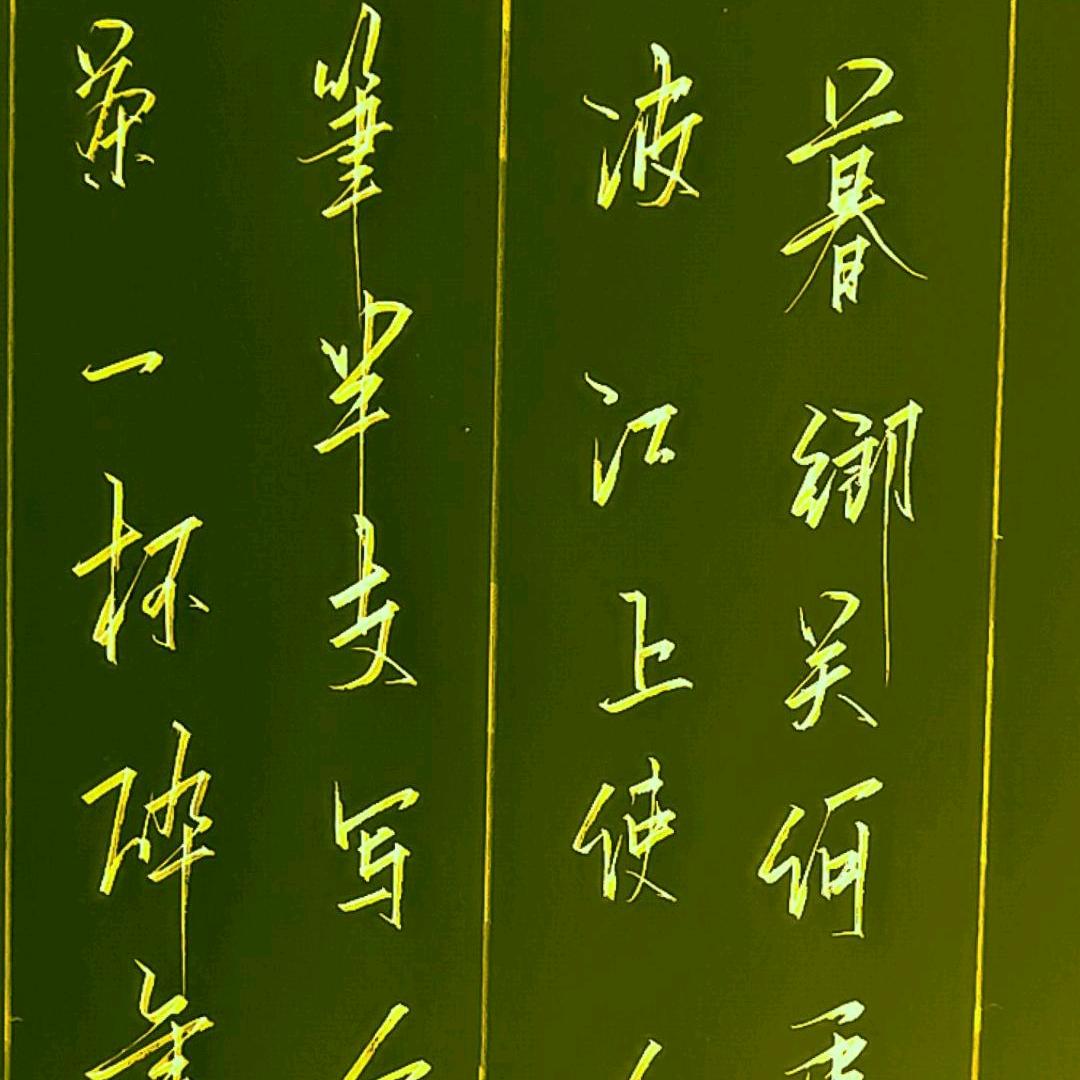 暮鄉关何
波江上使
筆半支写
茶一杯碎